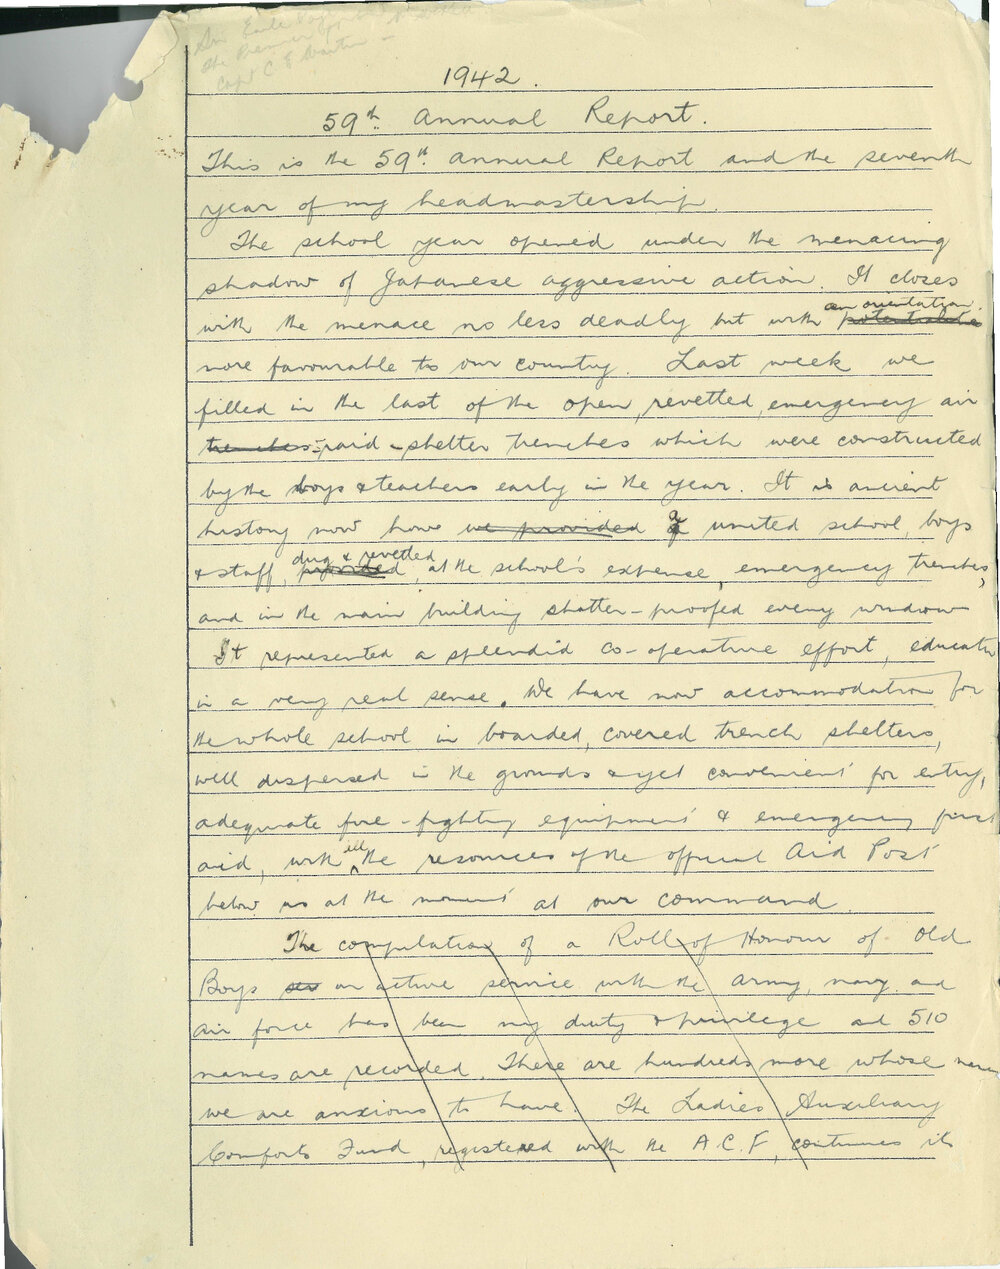 Sir Earle Page
the Premier
Capt C E Martin -
1942.
59th Annual Report.
This is the 59th Annual Report and the seventh
year of my headmastership.
The school year opened under the menacing
shadow of Japanese aggressive action. It closes
with the menace no less deadly but with an orientation
more favourable to our country. Last week we
filled in the last of the open, revetted, emergency air
trenches raid-shelter trenches which were constructed
by the boys & teachers early in the year. It is ancient
history now how we provided a united school, boys
& staff, dug & revetted, at the school's expense, emergency trenches,
and in the main building shatter-proofed every window
It represented a splendid co-operative effort, educative
in a very real sense. We have now accommodation for
the whole school in boarded, covered trench shelters,
well dispersed in the grounds & yet convenient for entry,
adequate fire-fighting equipment & emergency first
aid, with all the resources of the official Aid Post
below us at the moment at our command.
The compilation of a Roll of Honour of Old
Boys on active service with the army, navy and
air force has been my duty & privilege and 510
names are recorded. There are hundreds more whose names
we are anxious to have. The Ladies Auxiliary
Comforts Fund, registered with the A.C.F, continues its